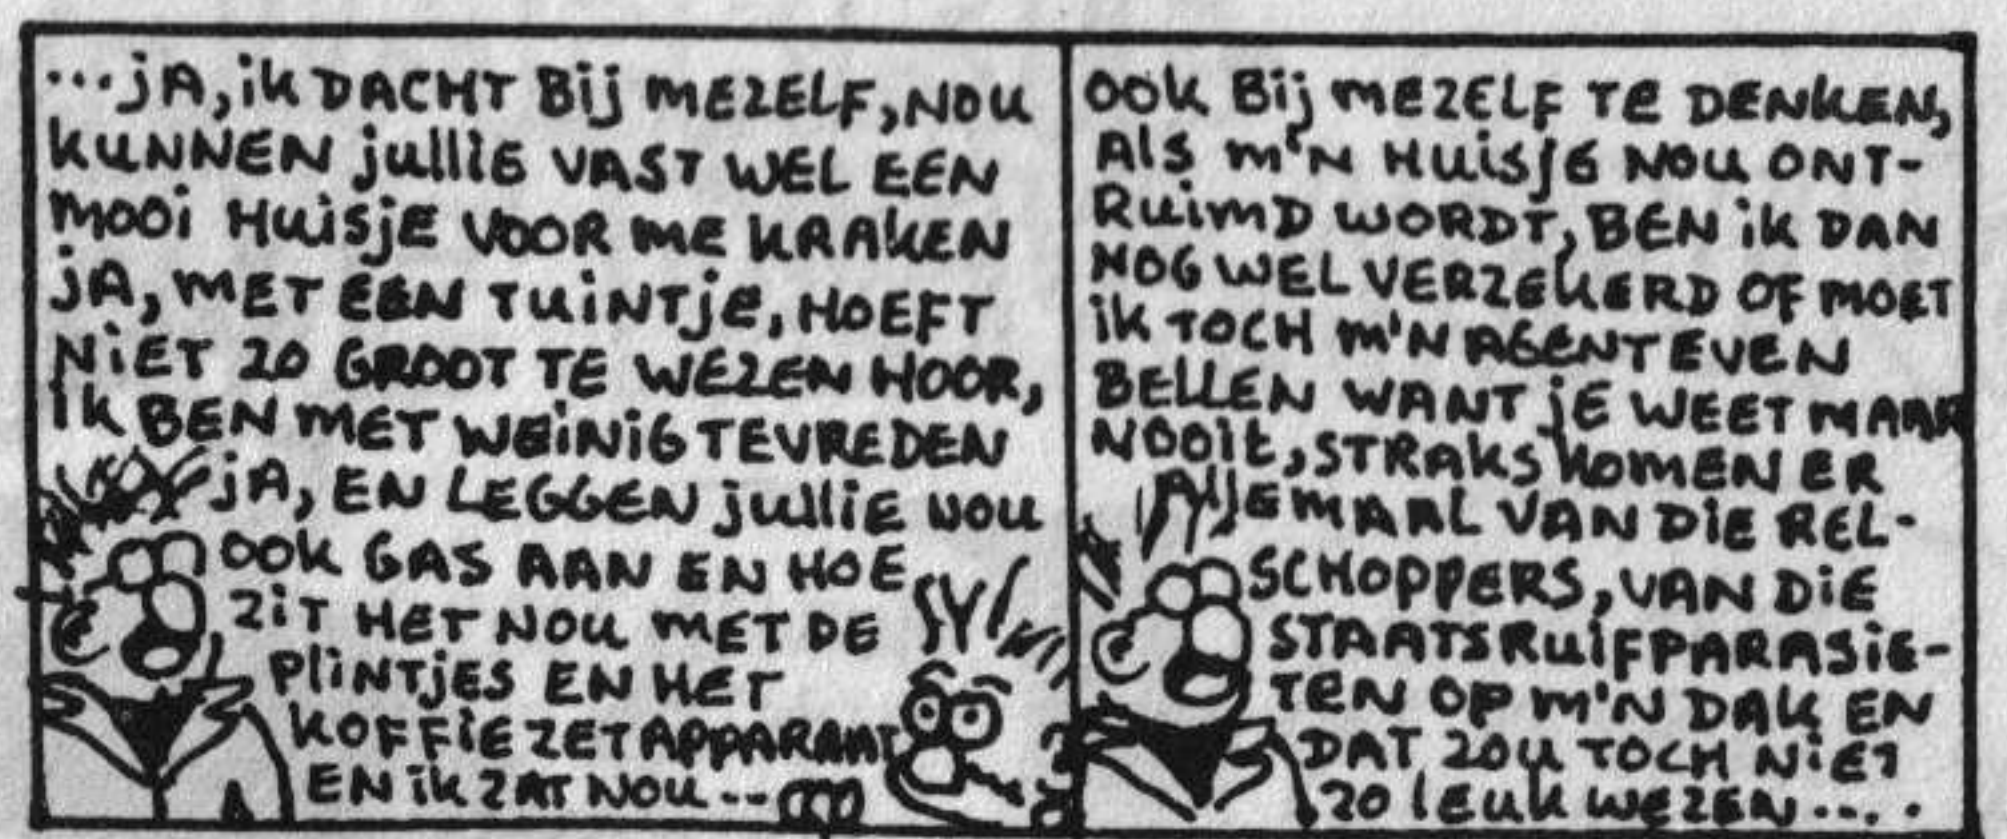 ...JA, ik DACHT Bij MEZELF, NOU
KUNNEN jullie VAST WEL EEN
MOOi HuisjE VOOR ME KRAKEN
jA, MET EEN TuiNTje, HOEFT
NiET ZO GROOT TE WEZEN HOOR,
ik BEN MET WEiNiG TEVREDEN
jA, EN LEGGEN jullIE NOU
OOk GAS AAN EN HOE
ZiT HET NOU MET DE
PliNTjES EN HET
KOFFiEZETAPPARAAT
EN ik ZAT NOU --
OOk Bij MEZELF TE DENKEN,
AlS M'N HuisjE NOU ONT-
RuiMD WORDT, BEN ik DAN
NOG WEL VERZEKERD OF MOET
ik TOCH M'N AGENT EVEN
BELLEN WANT jE WEET MAAR
NOOit, STRAkS KOMEN ER
AllEMAAL VAN DiE REL-
SCHOPPERS, VAN DiE
STAATSRuiFPARASiE-
TEN OP M'N DAK EN
DAT ZOU TOCH NiET
ZO lEUK WEZEN....